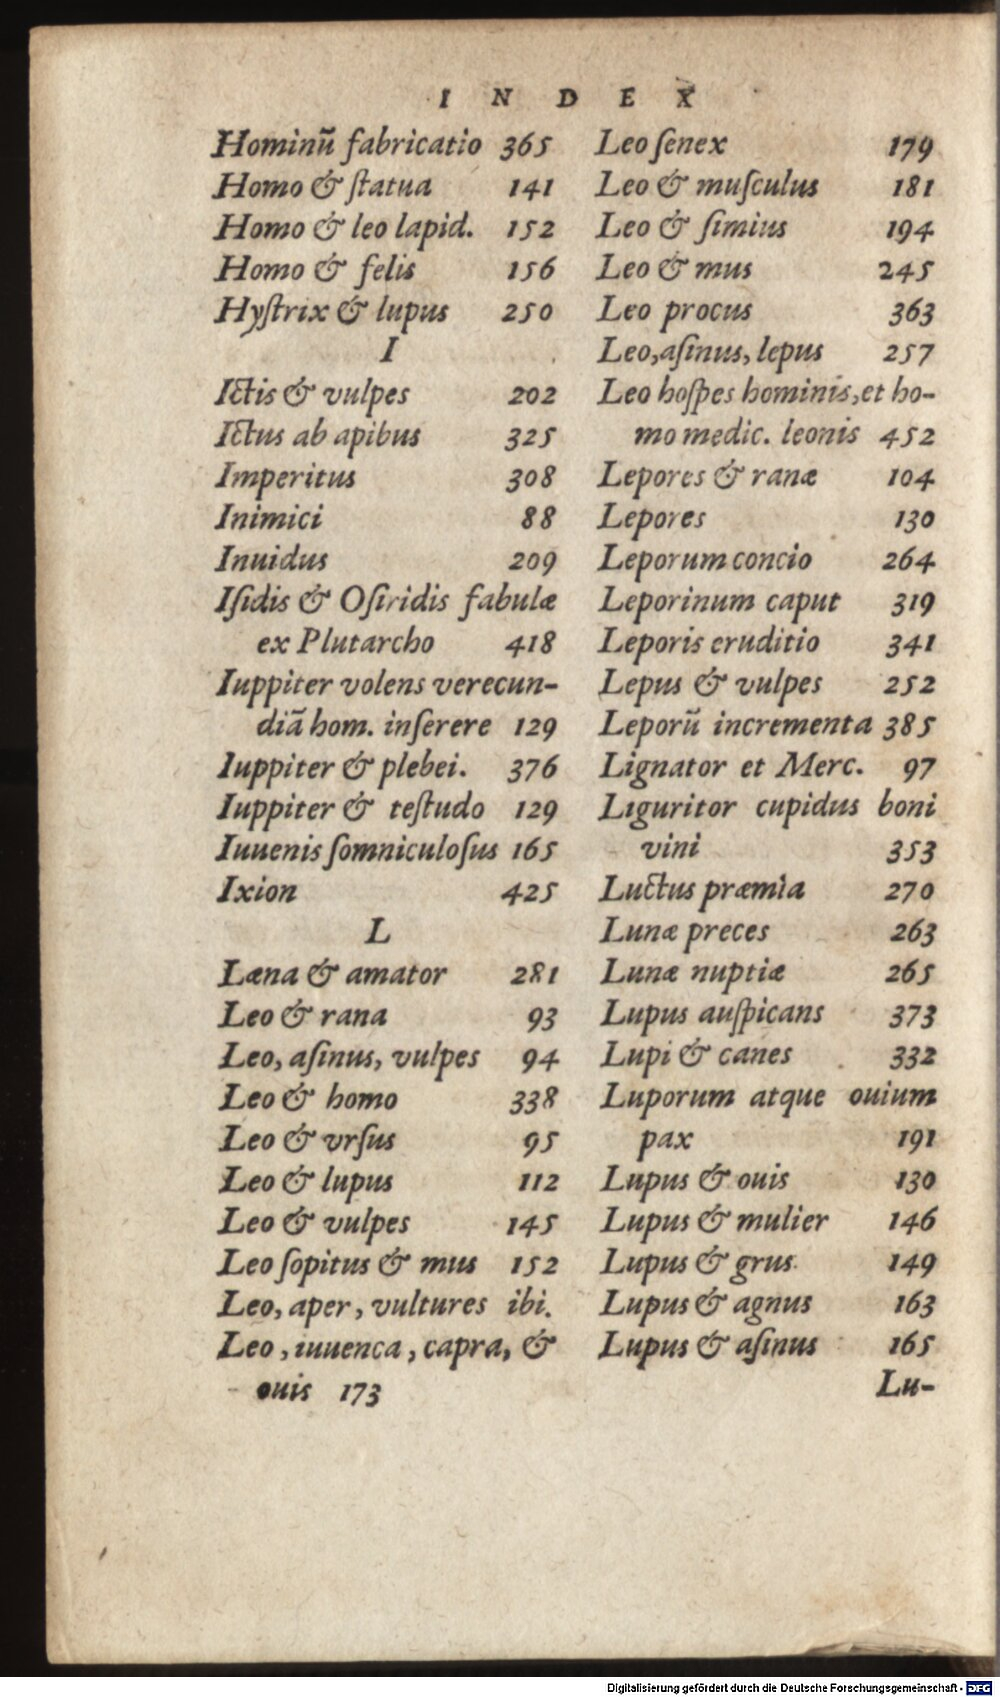 INDEX
Hominū fabricatio 365
Homo & ſtatua 141
Homo & leo lapid. 152
Homo & felis 156
Hyſtrix & lupus 250
I
Ictis & vulpes 202
Ictus ab apibus 325
Imperitus 308
Inimici 88
Inuidus 209
Iſidis & Oſiridis fabulæ
ex Plutarcho 418
Iuppiter volens verecun-
diā hom. inſerere 129
Iuppiter & plebei. 376
Iuppiter & teſtudo 129
Iuuenis ſomniculoſus 165
Ixion 425
L
Læna & amator 281
Leo & rana 93
Leo, aſinus, vulpes 94
Leo & homo 338
Leo & vrſus 95
Leo & lupus 112
Leo & vulpes 145
Leo ſopitus & mus 152
Leo, aper, vultures ibi.
Leo, iuuenca, capra, &
ouis 173
Leo ſenex 179
Leo & muſculus 181
Leo & ſimius 194
Leo & mus 245
Leo procus 363
Leo, aſinus, lepus 257
Leo hoſpes hominis, et ho-
mo medic. leonis 452
Lepores & ranæ 104
Lepores 130
Leporum concio 264
Leporinum caput 319
Leporis eruditio 341
Lepus & vulpes 252
Leporū incrementa 385
Lignator et Merc. 97
Liguritor cupidus boni
vini 353
Luctus præmia 270
Lunæ preces 263
Lunæ nuptiæ 265
Lupus auſpicans 373
Lupi & canes 332
Luporum atque ouium
pax 191
Lupus & ouis 130
Lupus & mulier 146
Lupus & grus 149
Lupus & agnus 163
Lupus & aſinus 165
Lu-
Digitalisierung gefördert durch die Deutsche Forschungsgemeinschaft - DFG